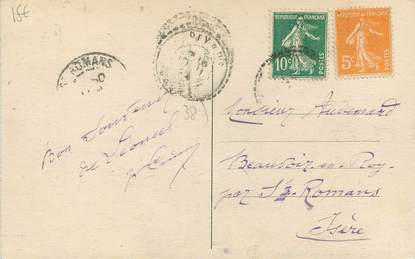 15€
ROMANS
REPUBLIQUE FRANÇAISE
10c
POSTES
REPUBLIQUE FRANÇAISE
5c
POSTES
38
Bon Souvenir
de Leoncel
Monsieur Audemard
Beauvoir-en-Roy
par St Romans
Isère